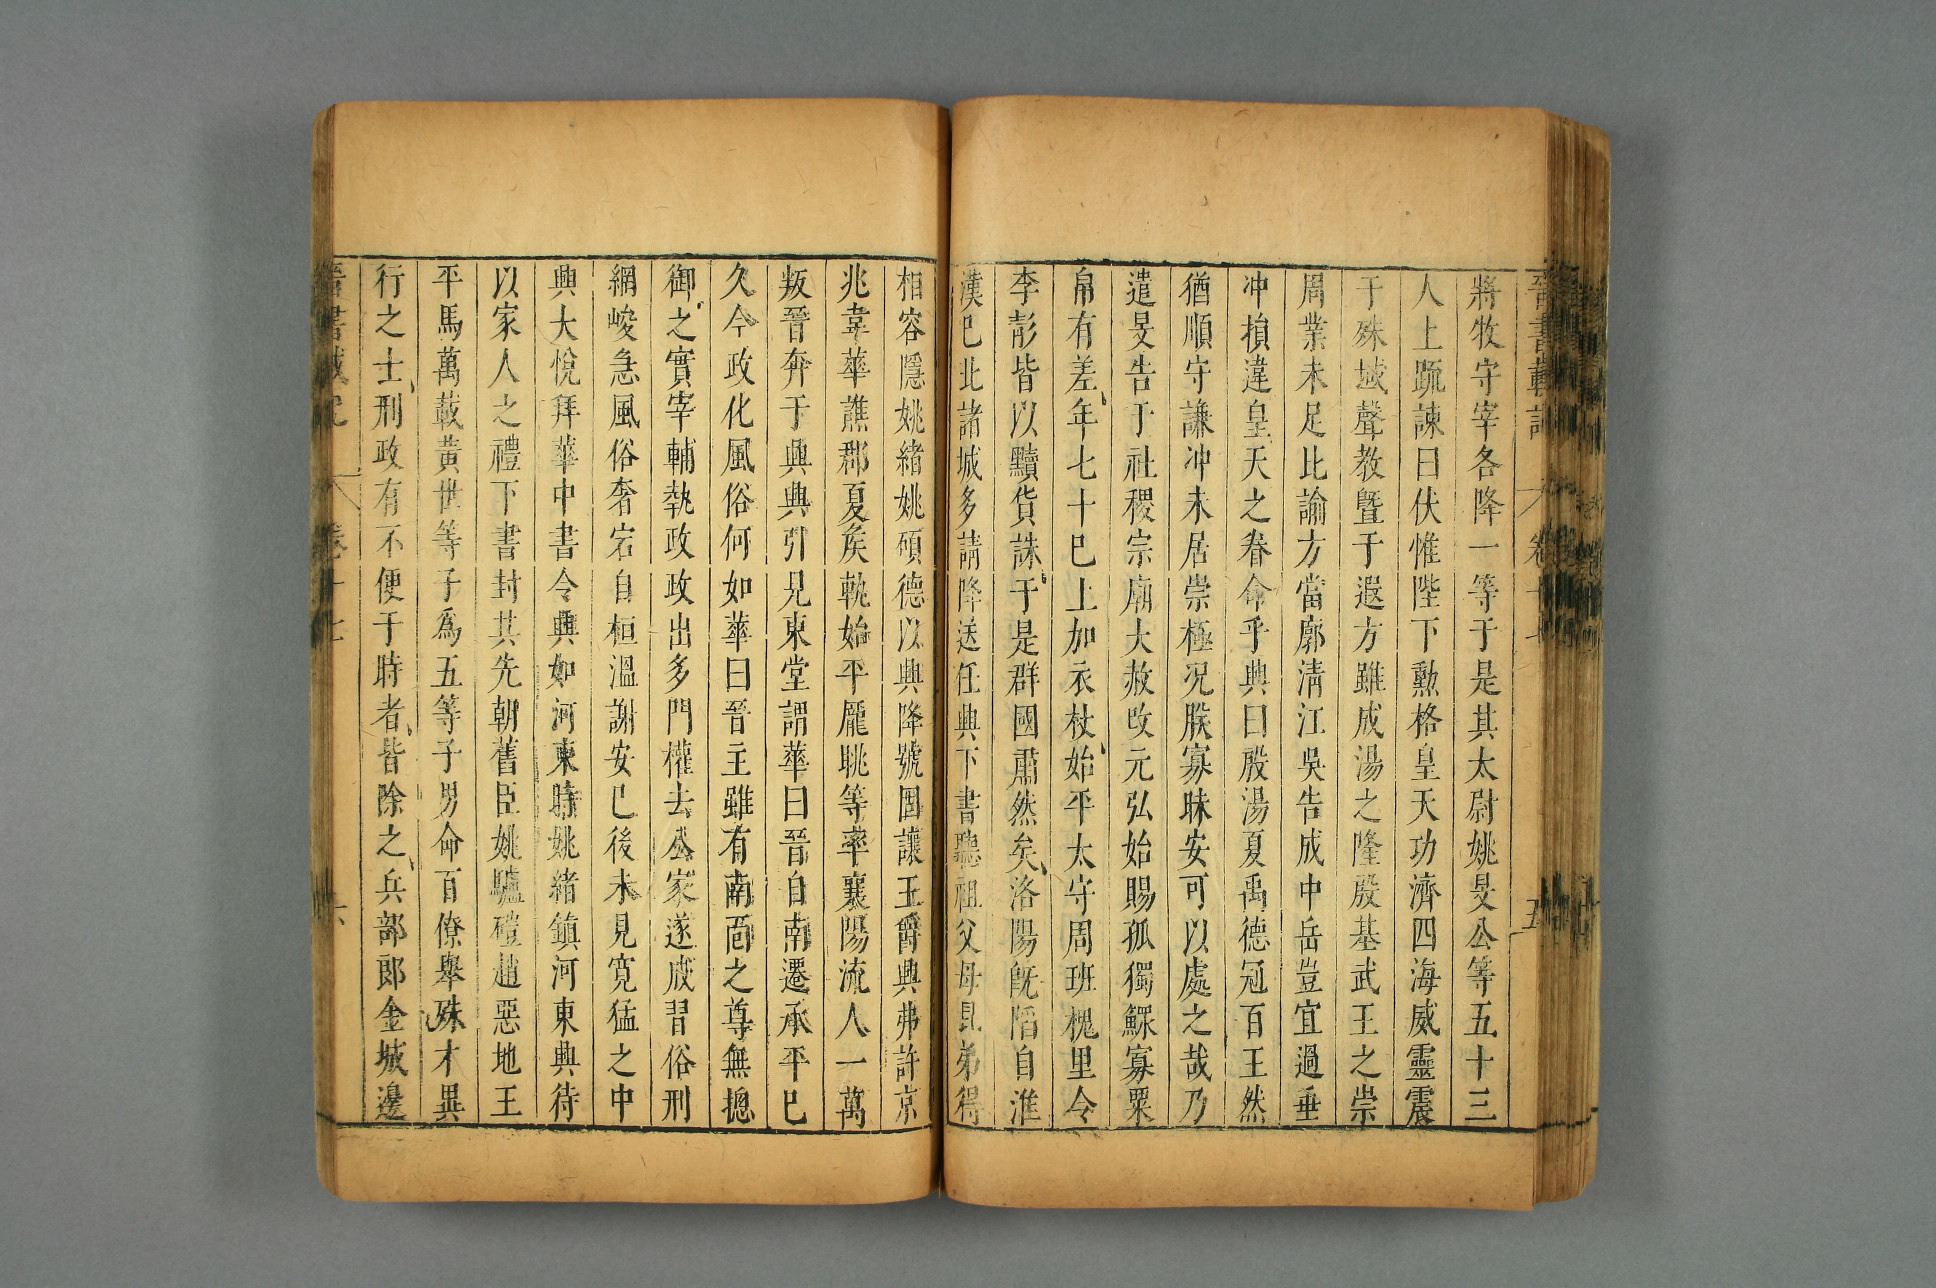 晉書載記 卷十七 五
將牧守宰各降一等于是其太尉姚旻公等五十三
人上疏諫曰伏惟陛下勲格皇天功濟四海威靈震
于殊域聲教暨于遐方雖成湯之隆殷基武王之崇
周業未足比諭方當廓清江吳告成中岳豈宜過垂
冲損違皇天之眷命乎興曰殷湯夏禹德冠百王然
猶順守謙冲未居崇極况朕寡昧安可以處之哉乃
遣旻告于社稷宗廟大赦改元弘始賜孤獨鰥寡粟
帛有差年七十已上加衣杖始平太守周班槐里令
李彭皆以黷貨誅于是群國肅然矣洛陽旣陷自淮
漢已北諸城多請降送任興下書聽祖父母昆弟得
相容隱姚緒姚碩德以興降號固讓王爵興弗許京
兆韋華譙郡夏矦軌始平龐眺等率襄陽流人一萬
叛晉奔于興興引見東堂謂華曰晉自南遷承平已
久今政化風俗何如華曰晉主雖有南面之尊無摠
御之實宰輔執政政出多門權去公家遂成習俗刑
網峻急風俗奢宕自桓溫謝安已後未見寬猛之中
興大悅拜華中書令興如河東時姚緒鎮河東興待
以家人之禮下書封其先朝舊臣姚驢磑趙惡地王
平馬萬載黃世等子爲五等子男命百僚舉殊才異
行之士刑政有不便于時者皆除之兵部郎金城邊
晉書載記 卷十七 六